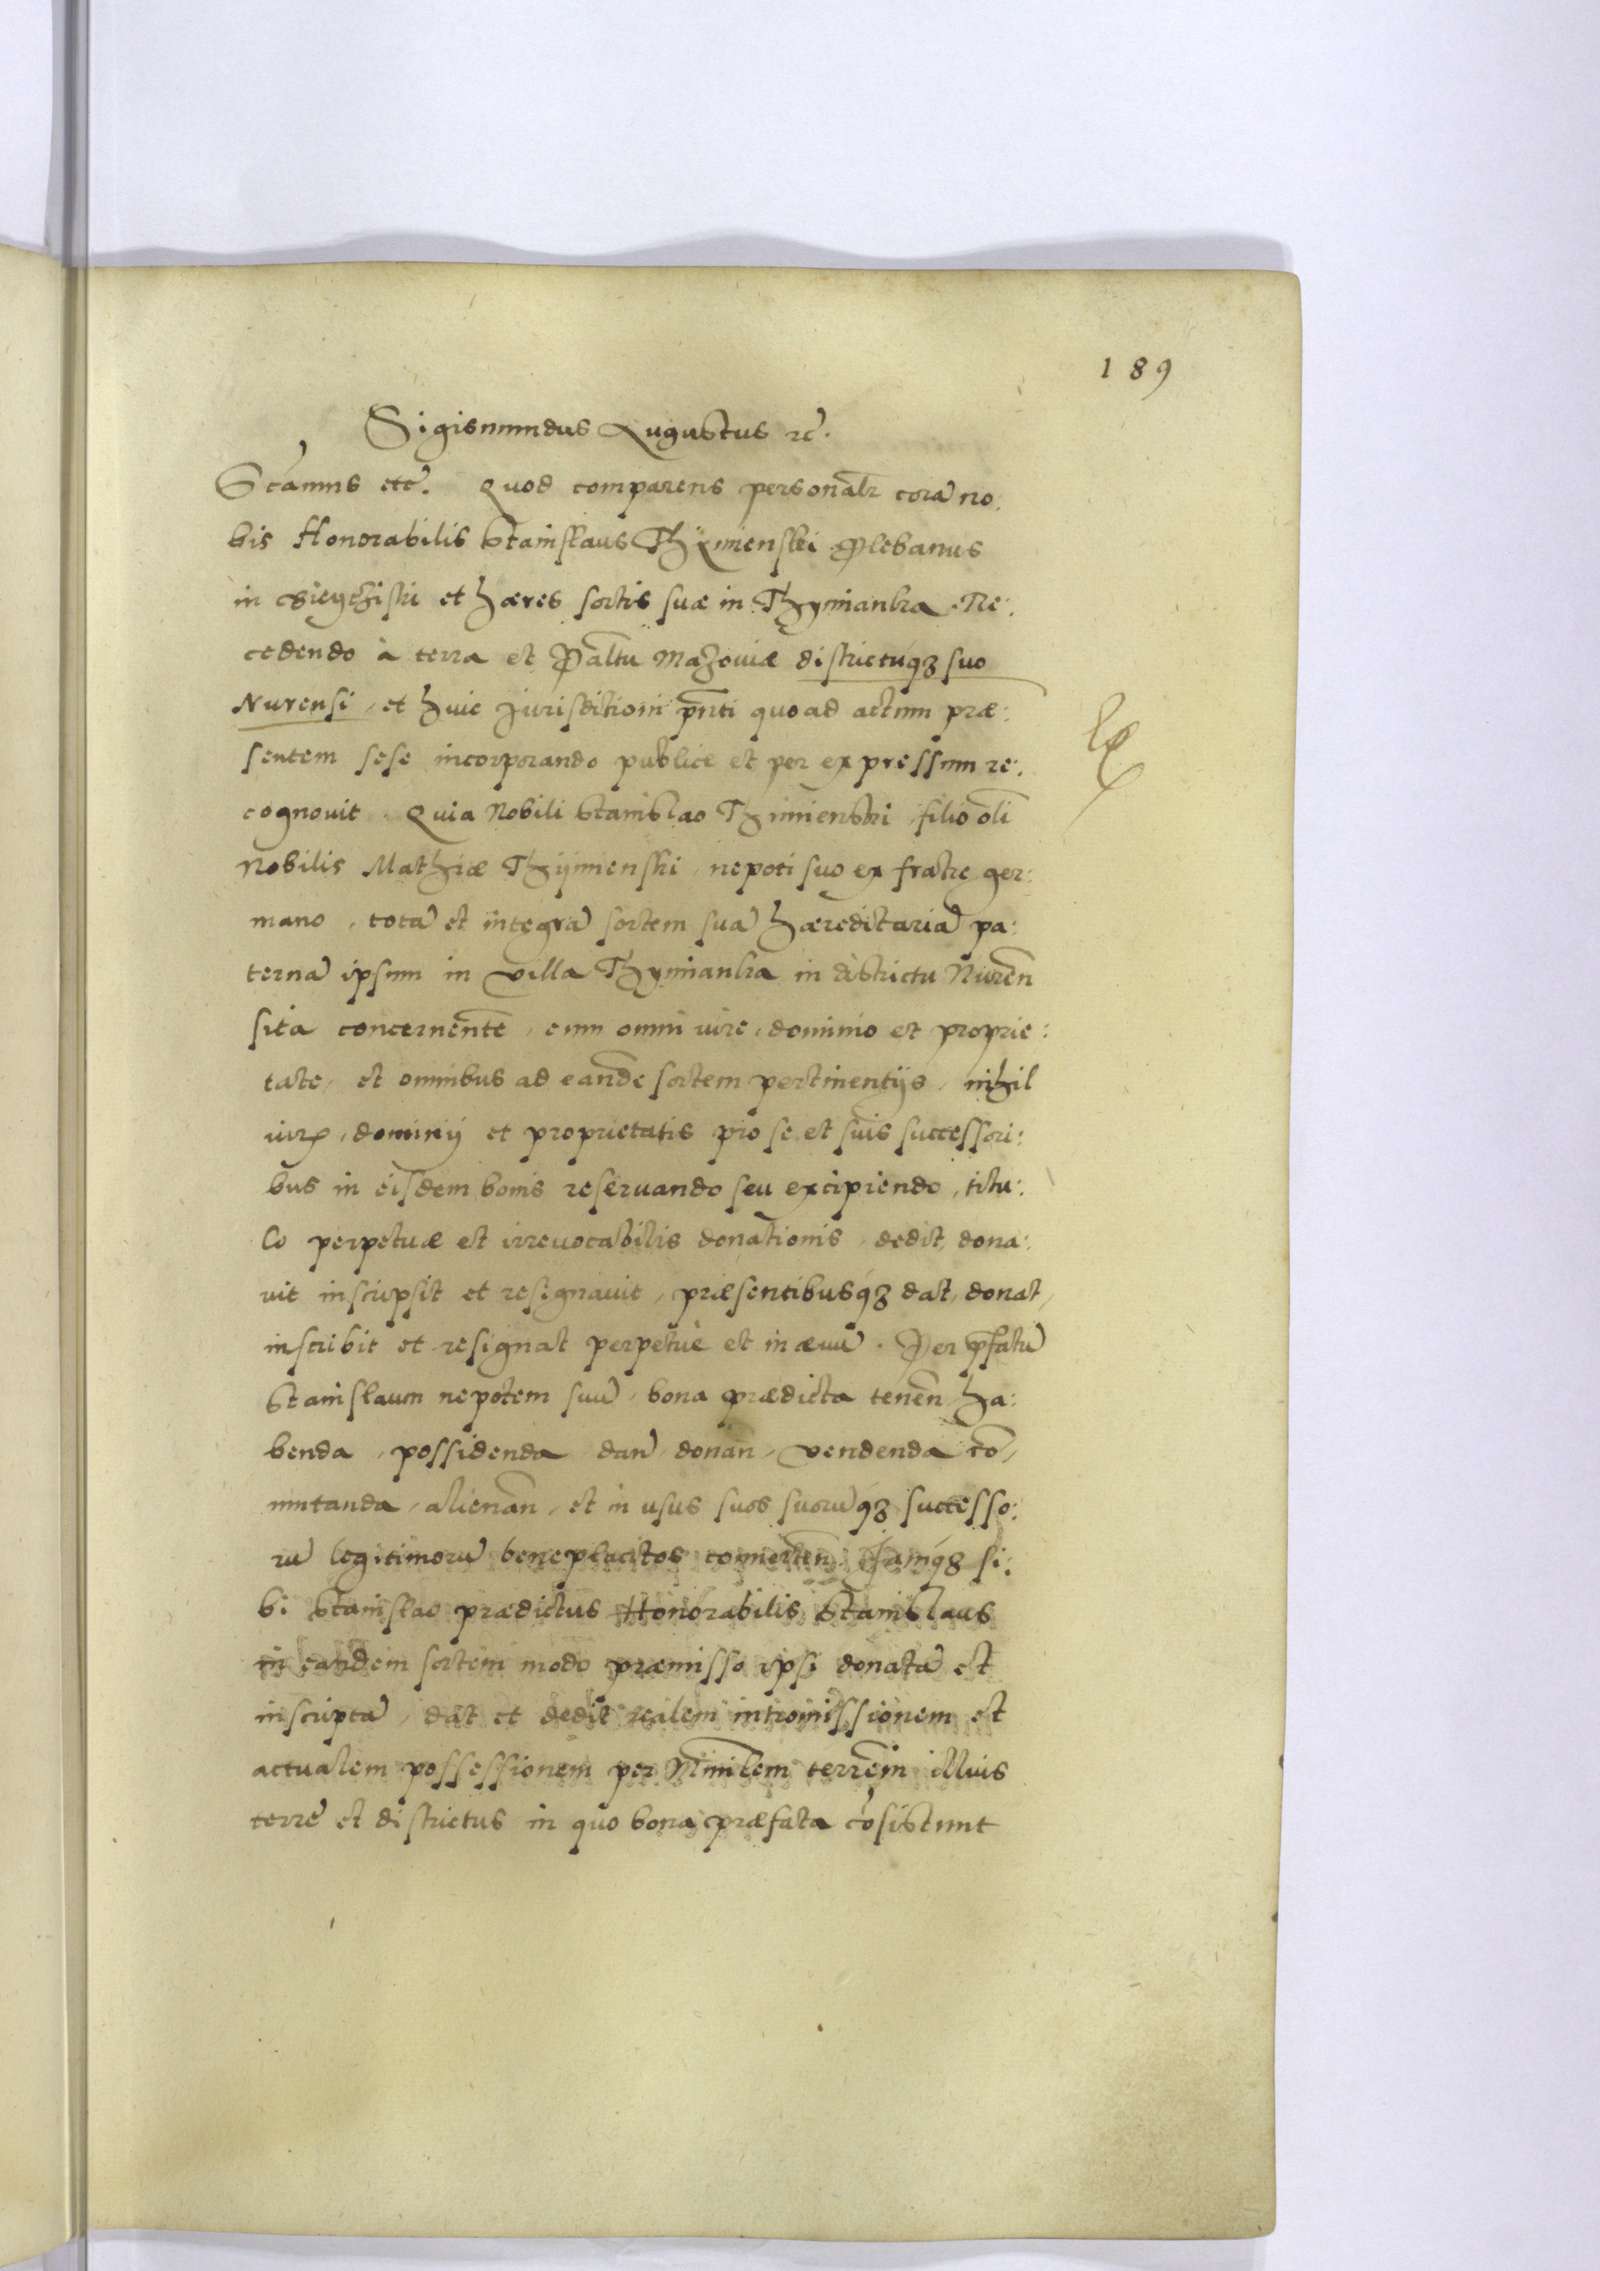 189
Sigismundus Augustus rc̃.
Scãmus etc̃. Quod comparens personalr̃ corã no:
bis Honorabilis Stanislaus Thymienski Plebanus
in et hæres sortis suæ in Thymianka. Re:
cedendo à terra et Pãltu Mazouiæ districtuq3 suo
Nurensi, et huic Jurisditioni pñti quo ad actum præ:
sentem sese incorporando publice et per expressum re:
cognouit. Quia Nobili Stanislao Thimienski, filio oli
Nobilis Mathiæ Thymienski, nepoti suo ex fratre ger:
mano, totã et integrã sortem suã hæreditariã pa:
ternã ipsum in villa Thymianka in districtu Nureñ
sitã concernente, cum omni iure, dominio et proprie:
tate, et omnibus ad eandẽ sortem pertinentijs, nihil
iuris, dominij et proprietatis pro se et suis successori:
bus in eisdem bonis reseruando seu excipiendo, titu:
lo perpetuæ et irreuocabilis donationis, dedit, dona:
uit inscripsit et resignauit, præsentibusq3 dat, donat,
inscribit et resignat perpetuè et in æuũ. Per pr̃fatũ
Stanislaum nepotem suũ, bona prædicta teneñ ha:
benda, possidenda dañ donañ, vendenda cõ,
mutanda, alienañ, et in usus suos suorũq3 successo:
rũ legitimorũ beneplacitos conuerteñ. Jamq3 si:
bi Stanislao prædictus Honorabilis Stanislaus
in eandem sortem modo præmisso ipsi donatã et
inscriptã, dat et dedit realem intromissionem et
actualem possessionem per Ministlem terrem illius
terre et districtus in quo bona præfata cõsistunt